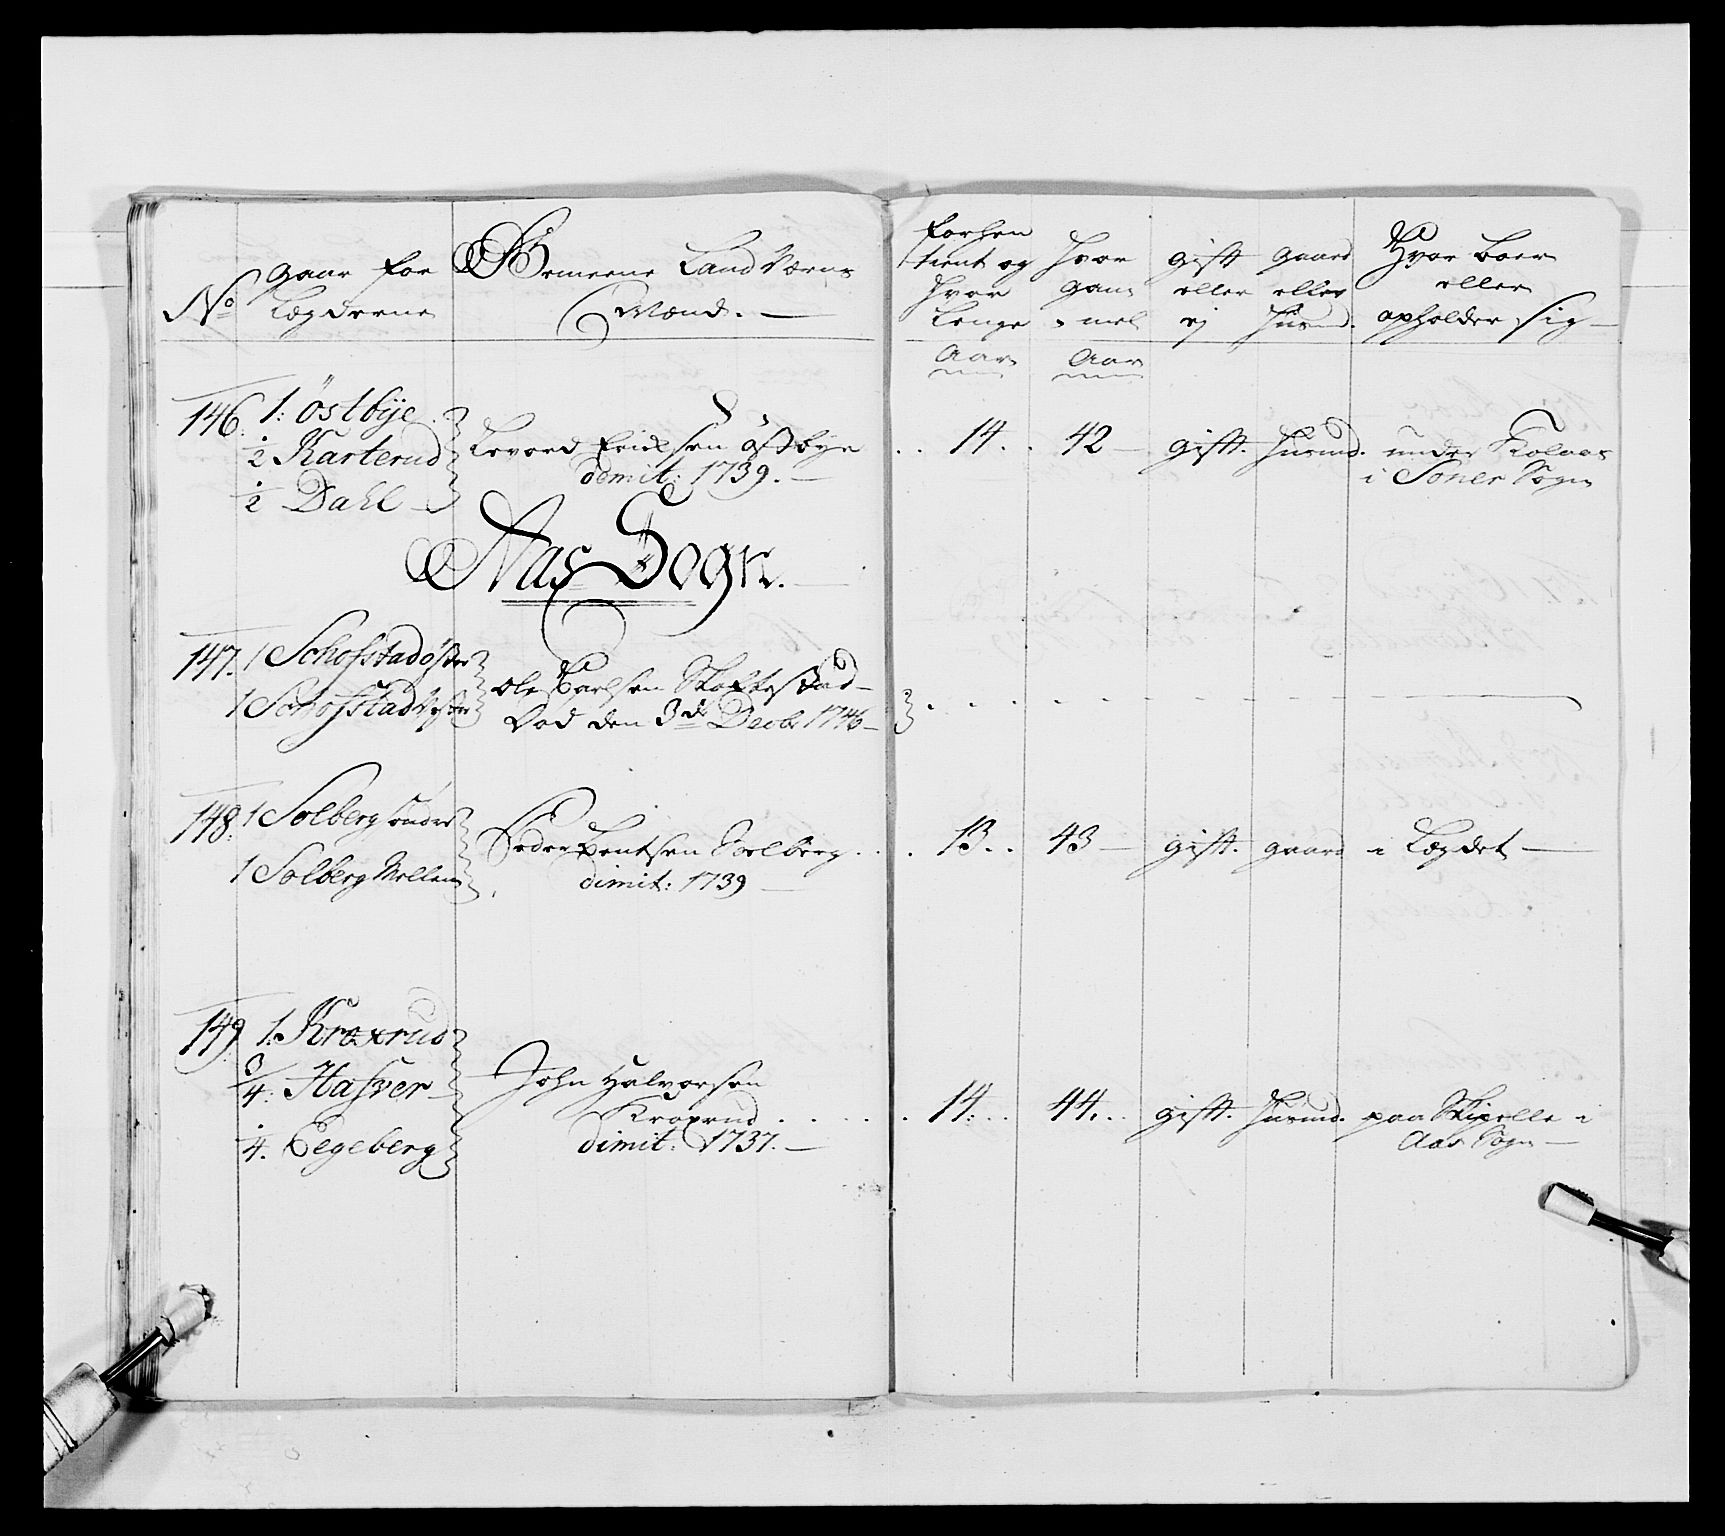 No
gaar for
Legderne
Gemeene Land Værns
Mænd. —
forhen
tient og
hvor
lenge
Aar
hvor
gam-
mel
Aar
gift
eller
ej
gaard
eller
husmd.
Hvor boer
eller
opholder sig —
146. 1: Östbÿe
½ Karterud
½ Dahl
Erichsen Östbye
dimit: 1739. —
14. 42 — gift. husmd. under Kolaas
i Soner Sogn
Aas Sogn. —
147. 1 Schofstad öster
1 Schofstad Vester
Ole Carlsen Skofterstad
Död den 3de Decbr 1746 —
148. 1 Solberg sönder
1 Solberg Mellem
Peder Bentsen Soelberg
dimit: 1739 —
13. 43 — gift. gaard i Legdet —
149. 1. Kroxrud
3/4. Hasver
¼. Eegeberg
John Halvorsen
Kroxrud
dimit: 1737. —
14. 44. gift. husmd. paa Skipelle i
Aas Sogn —